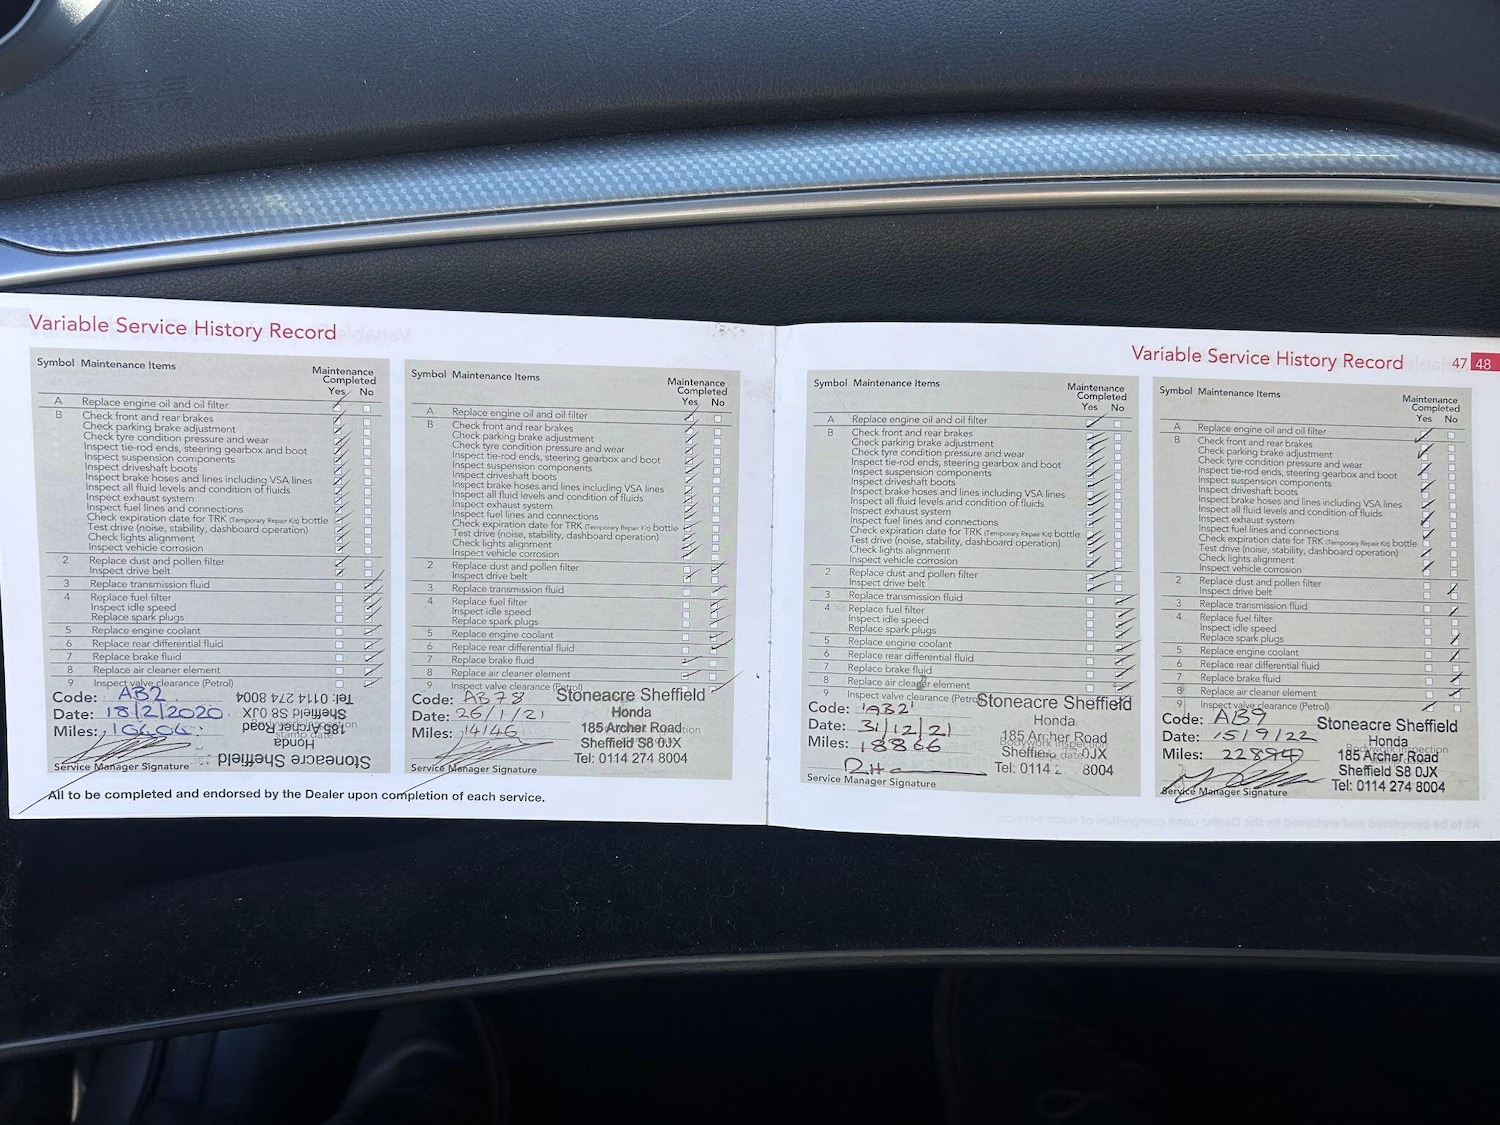 Variable Service History Record
Symbol Maintenance Items
Maintenance
Completed
Yes No
A Replace engine oil and oil filter
B Check front and rear brakes
Check parking brake adjustment
Check tyre condition pressure and wear
Inspect tie-rod ends, steering gearbox and boot
Inspect suspension components
Inspect driveshaft boots
Inspect brake hoses and lines including VSA lines
Inspect all fluid levels and condition of fluids
Inspect exhaust system
Inspect fuel lines and connections
Check expiration date for TRK (Temporary Repair Kit) bottle
Test drive (noise, stability, dashboard operation)
Check lights alignment
Inspect vehicle corrosion
2 Replace dust and pollen filter
Inspect drive belt
3 Replace transmission fluid
4 Replace fuel filter
Inspect idle speed
Replace spark plugs
5 Replace engine coolant
6 Replace rear differential fluid
7 Replace brake fluid
8 Replace air cleaner element
9 Inspect valve clearance (Petrol)
Code: AB2
Date: 18/2/2020
Miles: 10404
Service Manager Signature
Stoneacre Sheffield
Honda
185 Archer Road
Sheffield S8 0JX
Tel: 0114 274 8004
Symbol Maintenance Items
Maintenance
Completed
Yes No
A Replace engine oil and oil filter
B Check front and rear brakes
Check parking brake adjustment
Check tyre condition pressure and wear
Inspect tie-rod ends, steering gearbox and boot
Inspect suspension components
Inspect driveshaft boots
Inspect brake hoses and lines including VSA lines
Inspect all fluid levels and condition of fluids
Inspect exhaust system
Inspect fuel lines and connections
Check expiration date for TRK (Temporary Repair Kit) bottle
Test drive (noise, stability, dashboard operation)
Check lights alignment
Inspect vehicle corrosion
2 Replace dust and pollen filter
Inspect drive belt
3 Replace transmission fluid
4 Replace fuel filter
Inspect idle speed
Replace spark plugs
5 Replace engine coolant
6 Replace rear differential fluid
7 Replace brake fluid
8 Replace air cleaner element
9 Inspect valve clearance (Petrol)
Code: AB78
Date: 26/1/21
Miles: 14146
Service Manager Signature
Stoneacre Sheffield
Honda
185 Archer Road
Sheffield S8 0JX
Tel: 0114 274 8004
All to be completed and endorsed by the Dealer upon completion of each service.
Variable Service History Record 47 48
Symbol Maintenance Items
Maintenance
Completed
Yes No
A Replace engine oil and oil filter
B Check front and rear brakes
Check parking brake adjustment
Check tyre condition pressure and wear
Inspect tie-rod ends, steering gearbox and boot
Inspect suspension components
Inspect driveshaft boots
Inspect brake hoses and lines including VSA lines
Inspect all fluid levels and condition of fluids
Inspect exhaust system
Inspect fuel lines and connections
Check expiration date for TRK (Temporary Repair Kit) bottle
Test drive (noise, stability, dashboard operation)
Check lights alignment
Inspect vehicle corrosion
2 Replace dust and pollen filter
Inspect drive belt
3 Replace transmission fluid
4 Replace fuel filter
Inspect idle speed
Replace spark plugs
5 Replace engine coolant
6 Replace rear differential fluid
7 Replace brake fluid
8 Replace air cleaner element
9 Inspect valve clearance (Petrol)
Code: 'AB2'
Date: 31/12/21
Miles: 18866
Service Manager Signature
Stoneacre Sheffield
Honda
185 Archer Road
Sheffield 0JX
Tel: 0114 2 8004
Symbol Maintenance Items
Maintenance
Completed
Yes No
A Replace engine oil and oil filter
B Check front and rear brakes
Check parking brake adjustment
Check tyre condition pressure and wear
Inspect tie-rod ends, steering gearbox and boot
Inspect suspension components
Inspect driveshaft boots
Inspect brake hoses and lines including VSA lines
Inspect all fluid levels and condition of fluids
Inspect exhaust system
Inspect fuel lines and connections
Check expiration date for TRK (Temporary Repair Kit) bottle
Test drive (noise, stability, dashboard operation)
Check lights alignment
Inspect vehicle corrosion
2 Replace dust and pollen filter
Inspect drive belt
3 Replace transmission fluid
4 Replace fuel filter
Inspect idle speed
Replace spark plugs
5 Replace engine coolant
6 Replace rear differential fluid
7 Replace brake fluid
8 Replace air cleaner element
9 Inspect valve clearance (Petrol)
Code: AB9
Date: 15/9/22
Miles:
Service Manager Signature
Stoneacre Sheffield
Honda
185 Archer Road
Sheffield S8 0JX
Tel: 0114 274 8004